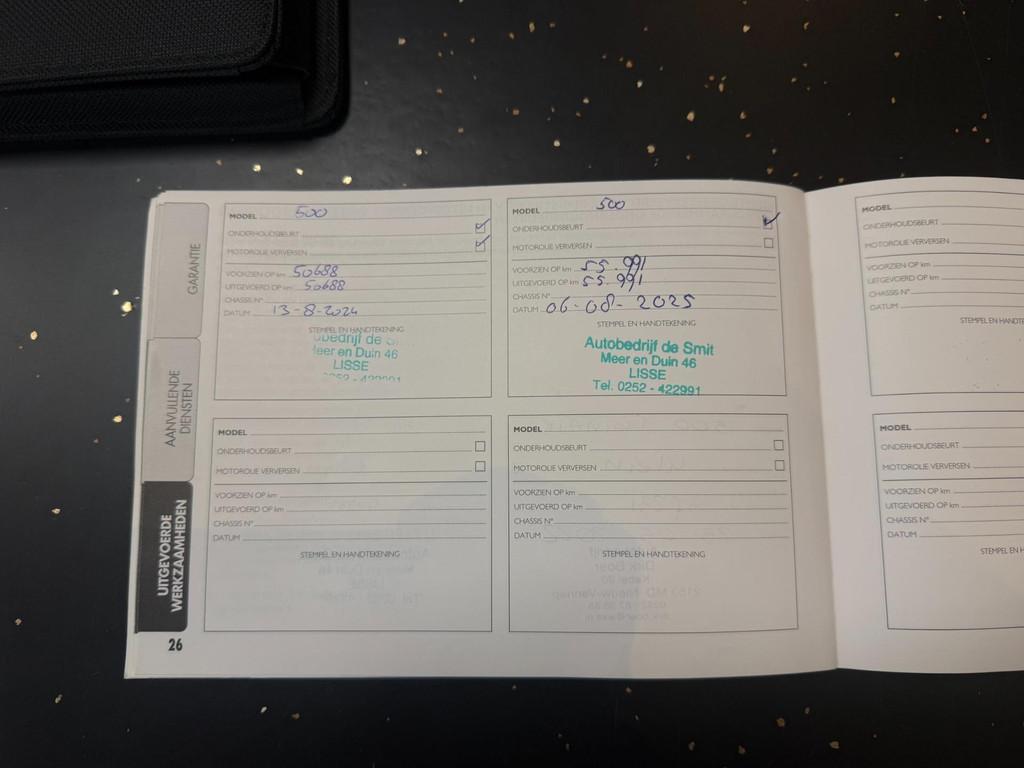 GARANTIE
AANVULLENDE
DIENSTEN
UITGEVOERDE
WERKZAAMHEDEN
26
MODEL 500
ONDERHOUDSBEURT
MOTOROLIE VERVERSEN
VOORZIEN OP km 50688
UITGEVOERD OP km 50688
CHASSIS N°
DATUM 13-8-2024
STEMPEL EN HANDTEKENING
Meer en Duin 46
LISSE
MODEL 500
ONDERHOUDSBEURT
MOTOROLIE VERVERSEN
VOORZIEN OP km 55.991
UITGEVOERD OP km 55.991
CHASSIS N°
DATUM 06-08-2025
STEMPEL EN HANDTEKENING
Autobedrijf de Smit
Meer en Duin 46
LISSE
Tel. 0252 - 422991
MODEL
ONDERHOUDSBEURT
MOTOROLIE VERVERSEN
VOORZIEN OP km
UITGEVOERD OP km
CHASSIS N°
DATUM
STEMPEL EN HANDTEKENING
MODEL
ONDERHOUDSBEURT
MOTOROLIE VERVERSEN
VOORZIEN OP km
UITGEVOERD OP km
CHASSIS N°
DATUM
STEMPEL EN HANDTEKENING
MODEL
ONDERHOUDSBEURT
MOTOROLIE VERVERSEN
VOORZIEN OP km
UITGEVOERD OP km
CHASSIS N°
DATUM
STEMPEL EN
MODEL
ONDERHOUDSBEURT
MOTOROLIE VERVERSEN
VOORZIEN OP km
UITGEVOERD OP km
CHASSIS N°
DATUM
STEMPEL EN